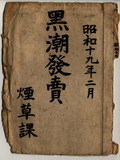 昭和十九年二月
黑潮發賣
煙草課